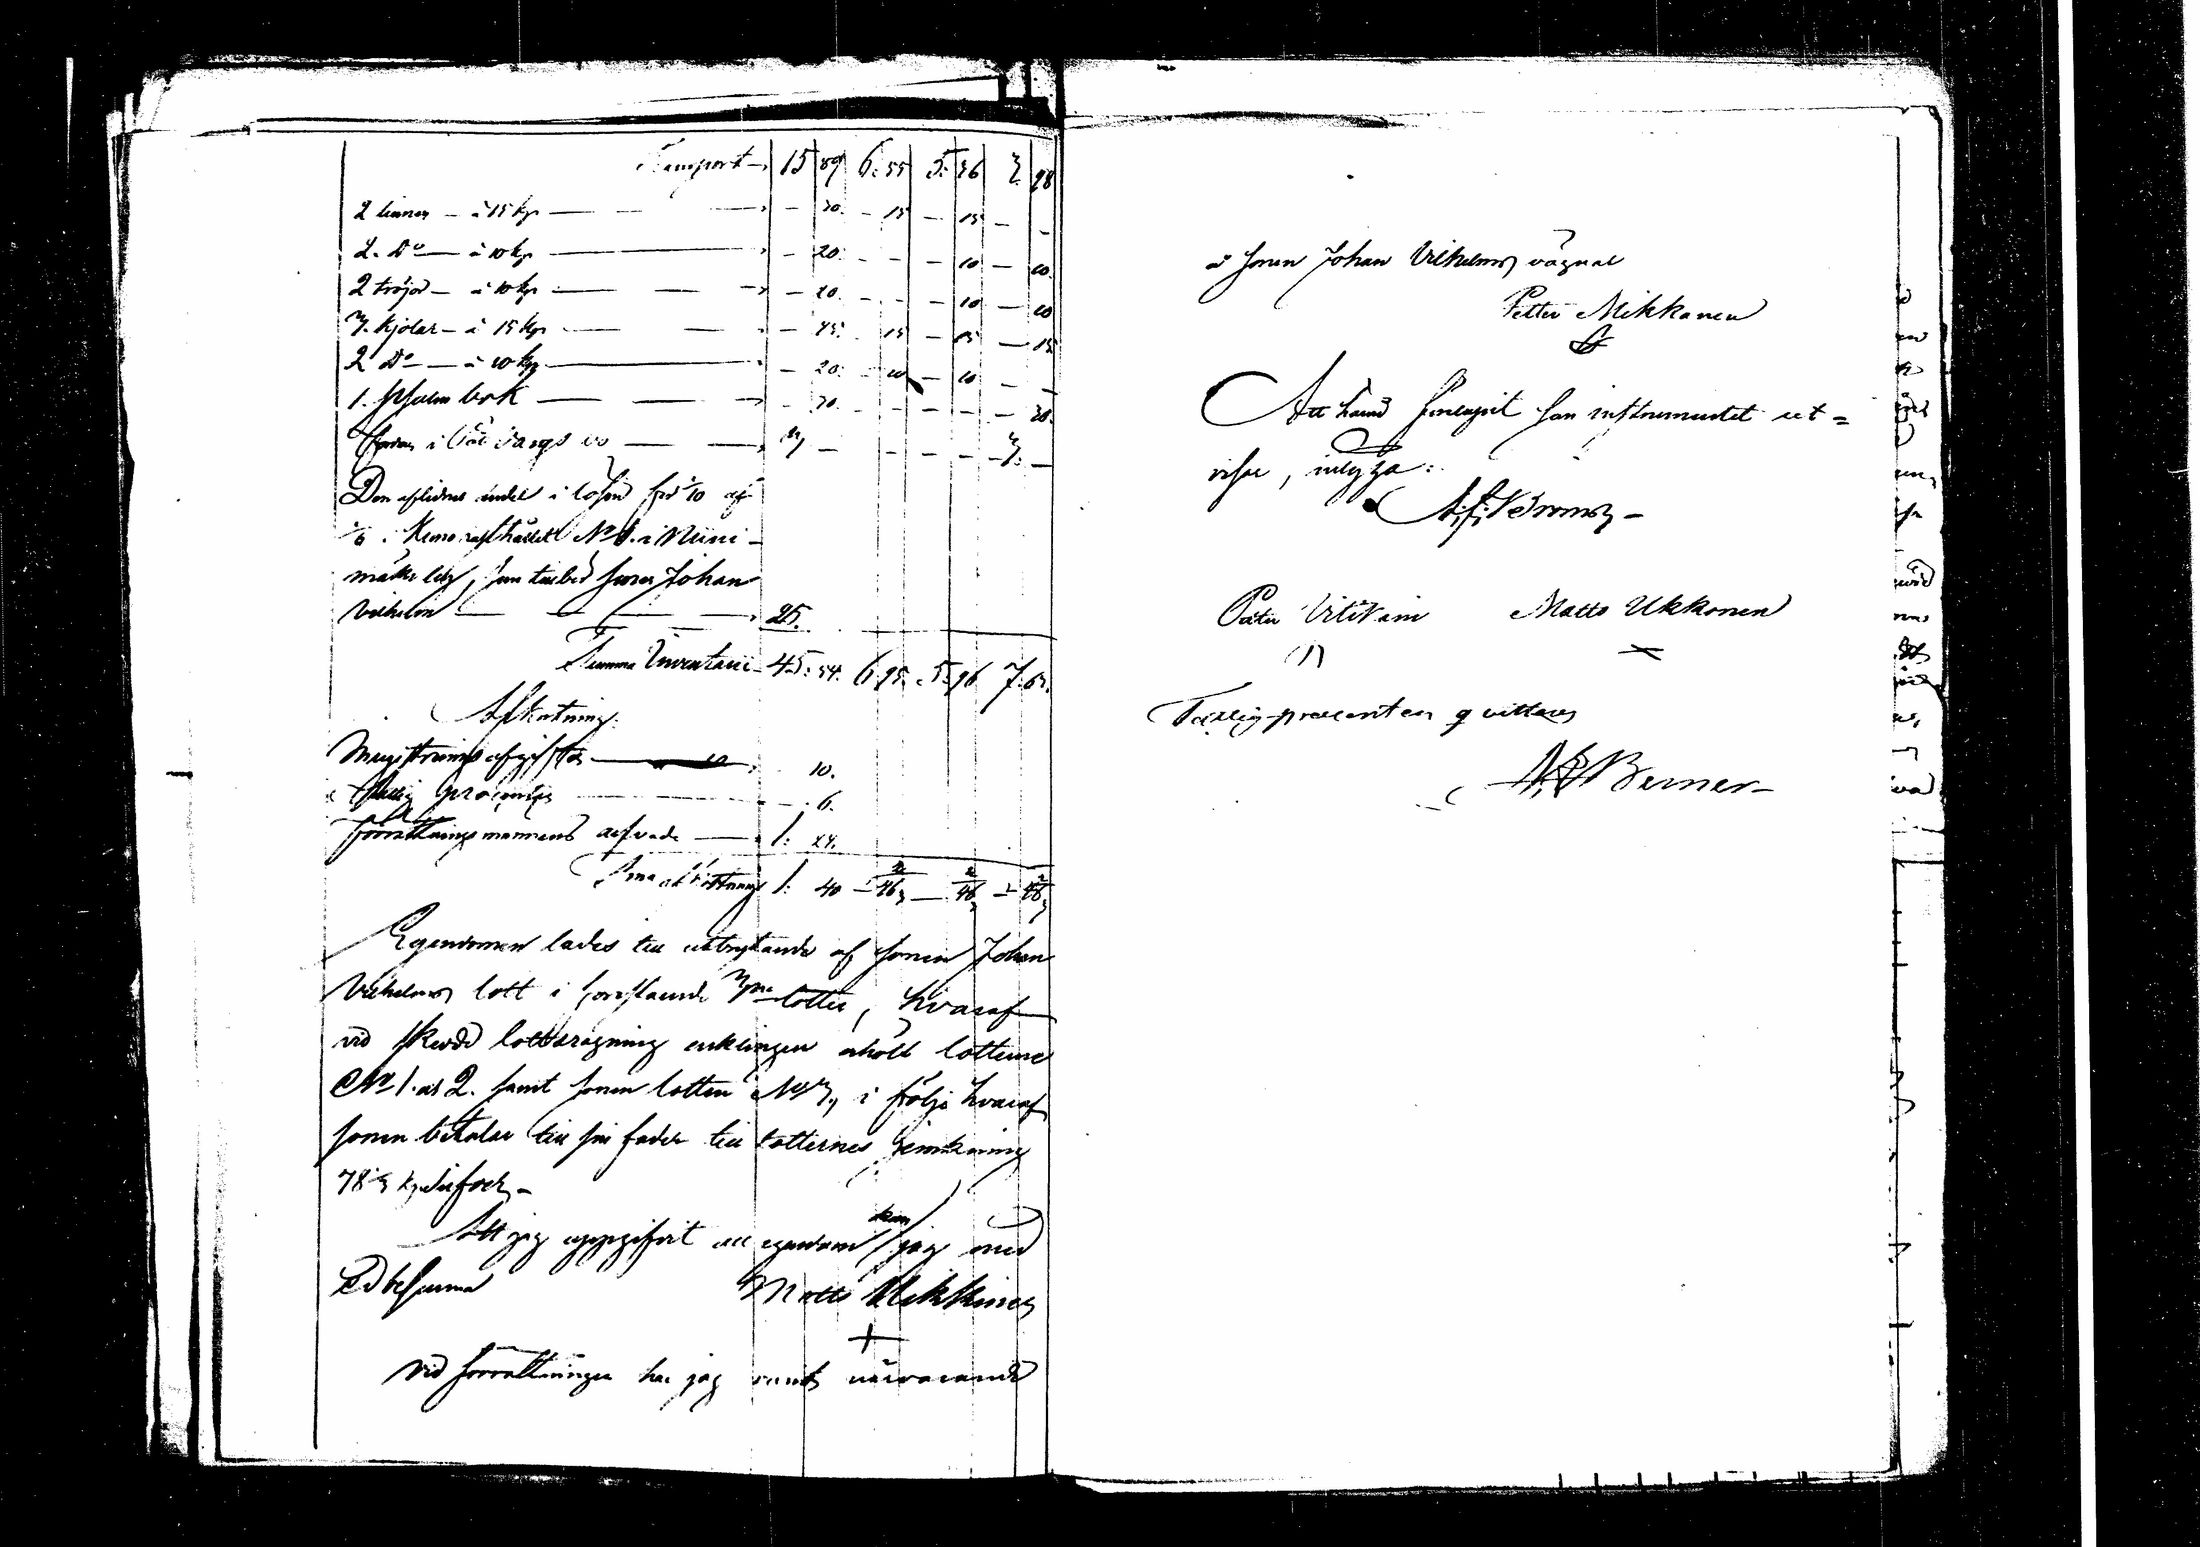 Transport 15 89 6. 55 5. 36 3. 98
2 linnen - à 15 kp — - 30. - 15 - 15 - -
2. Do - à 10 kp — - 20. - - - 10 - 10.
2 tröjor - à 10 kp — - 20. - - - 10 - 10
3. kjolar - à 15 kp — - 45. - 15 - 15 - 15.
2 Do - à 10 kp — - 20. - 10 - 10 - -
1. psalmbok — - 30. - - - - - 30.
3 - - - - - 3. -
Den aflidnes andel i lösen för 1/10 af
1/6 i Kemo rusthållet No 1. i Niini-
mäki by, som tillhör sonen Johan
Wilhelm — 25.
Summa Inventarii 45. 54. 6. 95. 5. 96 7. 63.
Afkortning.
Registreringsafgifter — 10.
Fattig procenten — - 6.
Förrättningsmannens arfvode — 1: 24.
Sma afkortning 1: 40 - 46 2/3 - 46 2/3 - 46 2/3
Egendomen lades till utbrytande af sonen Johan
Wilhelms lott i föreslående 3ne lotter, hvaraf
vid skedd lottdragning enklingen erhöll lotterne
No 1. at 2. samt sonen lotten No 3, i följe hvaraf
sonen betalar till sin fader till lotternes jemkning
78 1/3 kp silfver,-
Att jag uppgifvit all egendom kan jag med
Ed besanna Matts Mikkinen
+
Vid förrättningen har jag varit närvarande
å sonen Johan Wilhelms vägnar
Petter Mikkanen
Att hafva förlupit som instrumentet ut=
visar, intyga:
Petter Vitikain Matts Ukkonen
Fattig procenten qvitteras
Berner